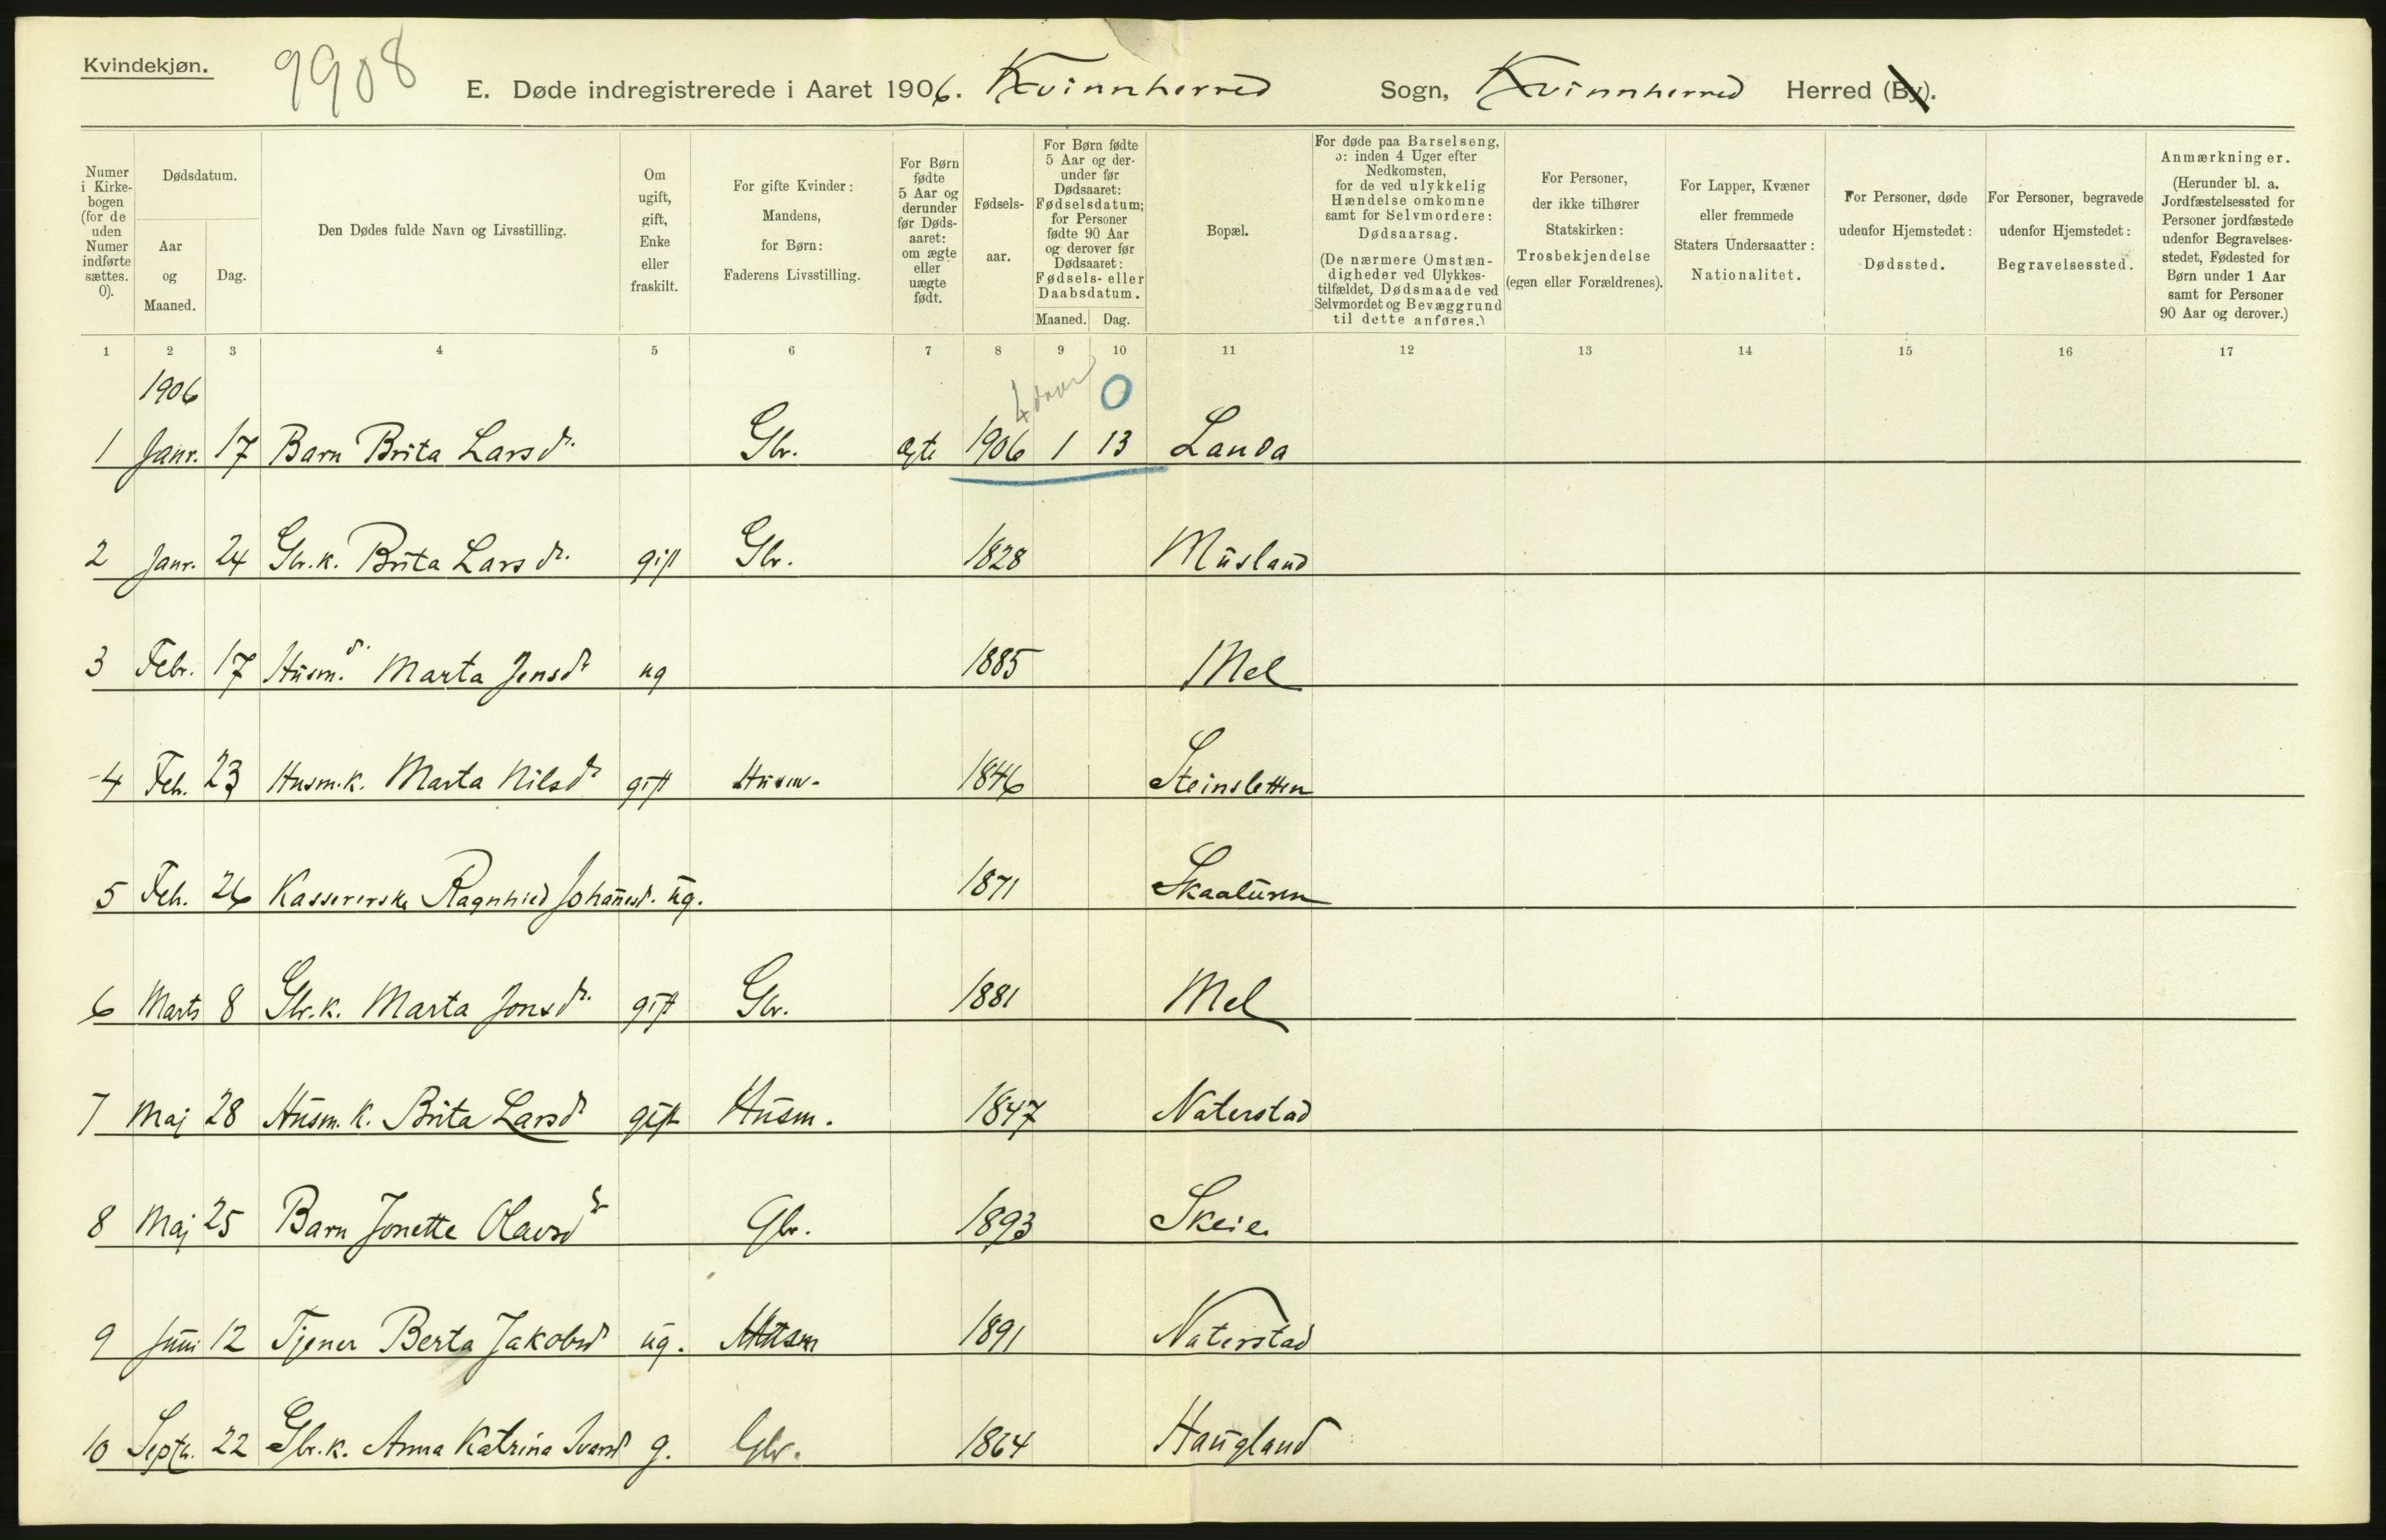 Kvindekjøn.
9908
E. Døde indregistrerede i Aaret 1906. Kvinnherred Sogn, Kvinnherred Herred (By).
Numer i Kirke-bogen (for de uden Numer indførte sættes. 0).
Dødsdatum.
Aar og Maaned.
Dag.
Den Dødes fulde Navn og Livsstilling.
Om ugift, gift, Enke eller fraskilt.
For gifte Kvinder: Mandens, for Børn: Faderens Livsstilling.
For Børn fødte 5 Aar og derunder før Døds-aaret: om ægte eller uægte født.
Fødsels-aar.
For Børn fødte 5 Aar og der-under før Dødsaaret: Fødselsdatum; for Personer fødte 90 Aar og derover før Dødsaaret: Fødsels- eller Daabsdatum.
Maaned. Dag.
Bopæl.
For døde paa Barselseng, ɔ: inden 4 Uger efter Nedkomsten, for de ved ulykkelig Hændelse omkomne samt for Selvmordere: Dødsaarsag. (De nærmere Omstæn-digheder ved Ulykkes-tilfældet, Dødsmaade ved Selvmordet og Bevæggrund til dette anføres.)
For Personer, der ikke tilhører Statskirken: Trosbekjendelse (egen eller Forældrenes).
For Lapper, Kvæner eller fremmede Staters Undersaatter: Nationalitet.
For Personer, døde udenfor Hjemstedet: Dødssted.
For Personer, begravede udenfor Hjemstedet: Begravelsessted.
Anmærkninger. (Herunder bl. a. Jordfæstelsessted for Personer jordfæstede udenfor Begravelses-stedet, Fødested for Børn under 1 Aar samt for Personer 90 Aar og derover.)
1 2 3 4 5 6 7 8 9 10 11 12 13 14 15 16 17
1906
4 0
1 Janr. 17 Barn Brita Larsdr. Gbr. ægte 1906 1 13 Landa
2 Janr. 24 Gbr.k. Brita Larsdr. gift Gbr. 1828 Musland
3 Febr. 17 Husm. d. Marta Jensdr ug 1885 Mel
4 Feb. 23 Husm.k. Marta Nilsdr gift Husm. 1846 Steinsletten
5 Feb. 26 Kassererske Ragnhild Johannesd. ug. 1871 Skaaluren
6 Marts 8 Gbr.k. Marta Jonsdr. gift Gbr. 1881 Mel
7 Maj 28 Husm.k. Brita Larsdr gift Husm. 1847 Naterstad
8 Maj 25 Barn Jonette Olavsdr Gbr. 1893 Skeie
9 Juni 12 Tjener Berta Jakobsdr ug. Husm 1891 Naterstad
10 Septr. 22 Gbr.k. Anna Katrina Ivarsdr g. Gbr. 1864 Haugland